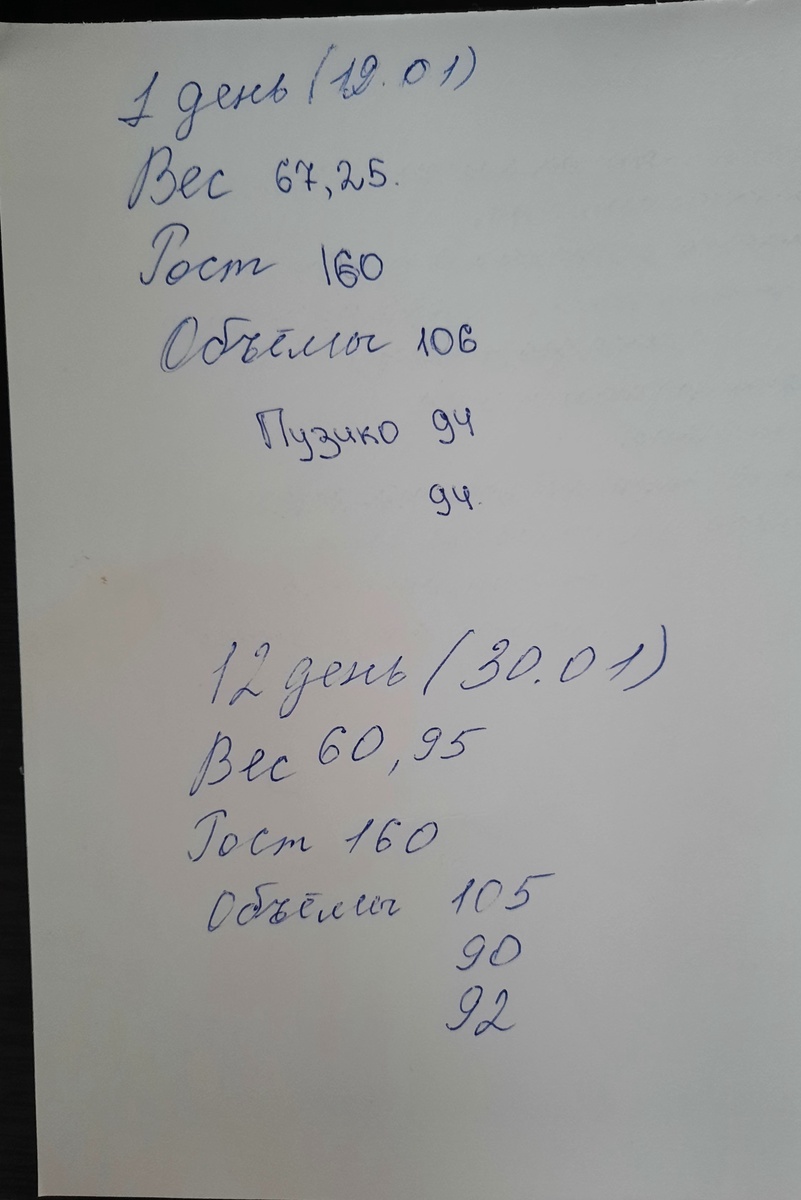 1 день (19.01)
Вес 67,25.
Рост 160
Объёмы 106
Пузико 94
94.
12 день (30.01)
Вес 60,95
Рост 160
Объёмы 105
90
92